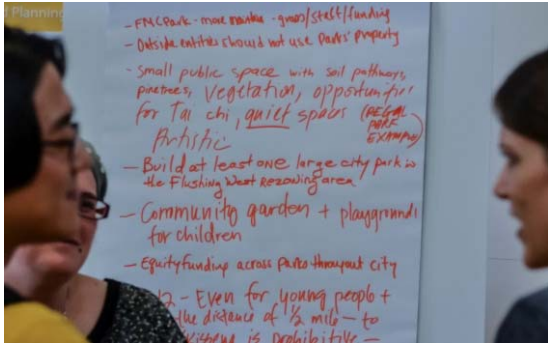 f Planning
- FMCPark - more - grass/staff/funding
- Outside entities should not use Parks' property
- Small public space with soil pathways,
pinetrees, vegetation, opportunities
for Tai chi, quiet spaces (REGAL
PARK
EXAMPLE)
Artistic
- Build at least one large city park in
the Flushing West Rezoning area
- Community garden + playgrounds
for children
- Equity funding across parks throughout city
- Even for young people +
the distance of 1/2 mile - to
is prohibitive -